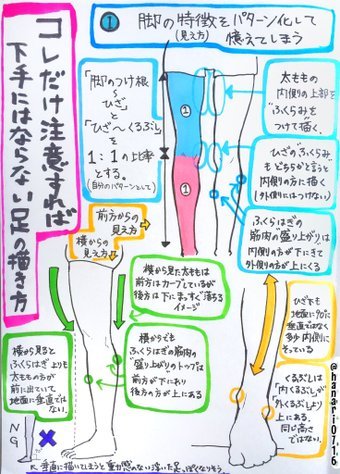 コレだけ注意すれば
下手にはならない足の描き方
① 脚の特徴をパターン化して
(見え方)
憶えてしまう
「脚のつけ根
〜ひざ」
と
「ひざ〜くるぶし」
を
1:1の比率
とする。
(自分のパターンとして)
①
①
太ももの
内側の上部を
"ふくらみ"を
つけて描く。
ひざの"ふくらみ"
もどちらかと言うと
内側の方に描く
(外側にはつけない)
ふくらはぎの
筋肉の"盛り上がり"は
内側の方が下にきて
外側の方が上にくる
前方からの
見え方
横からの
見え方
横から見た太ももは
前方はカーブしているが
後方は下にまっすぐ落ちる
イメージ
横からでも
ふくらはぎの筋肉の
盛り上がりのトップは
前方が下にあり
後方の方が上にある
ひざ下も
地面に90°に
垂直ではなく
多少内側に
そっている
くるぶしは
「内くるぶし」が
「外くるぶし」より
上にある。
同じ高さ
ではない。
横から見ると
ふくらはぎよりも
太ももの方が
前に出ていて
地面に垂直では
ない。
NG
垂直に描いてしまうと重力感のない浮いた足っぽくなりそう
@hanari0716